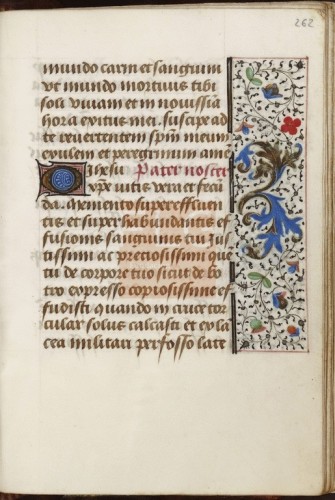 262
mundo carni et sanguini
vt mundo mortuus tibi
soli viuam et in nouissiā
hora exitus mei. suscipe ad
te reuertentem spm̄ meum
exulem et peregrinum ame
O Ihesu Pater noster
xp̄e vitis vera et fecū
da. Memento supereffluen
tis et superhabundantis ef
fusionis sanguinis tui Jus
tissimi ac preciosissimi que
tu de corpore tuo sicut de bo
tro expresso copiosissime ef
fudisti quando in cruce tor
cular solus calcasti et ex la
cea militari perfosso late